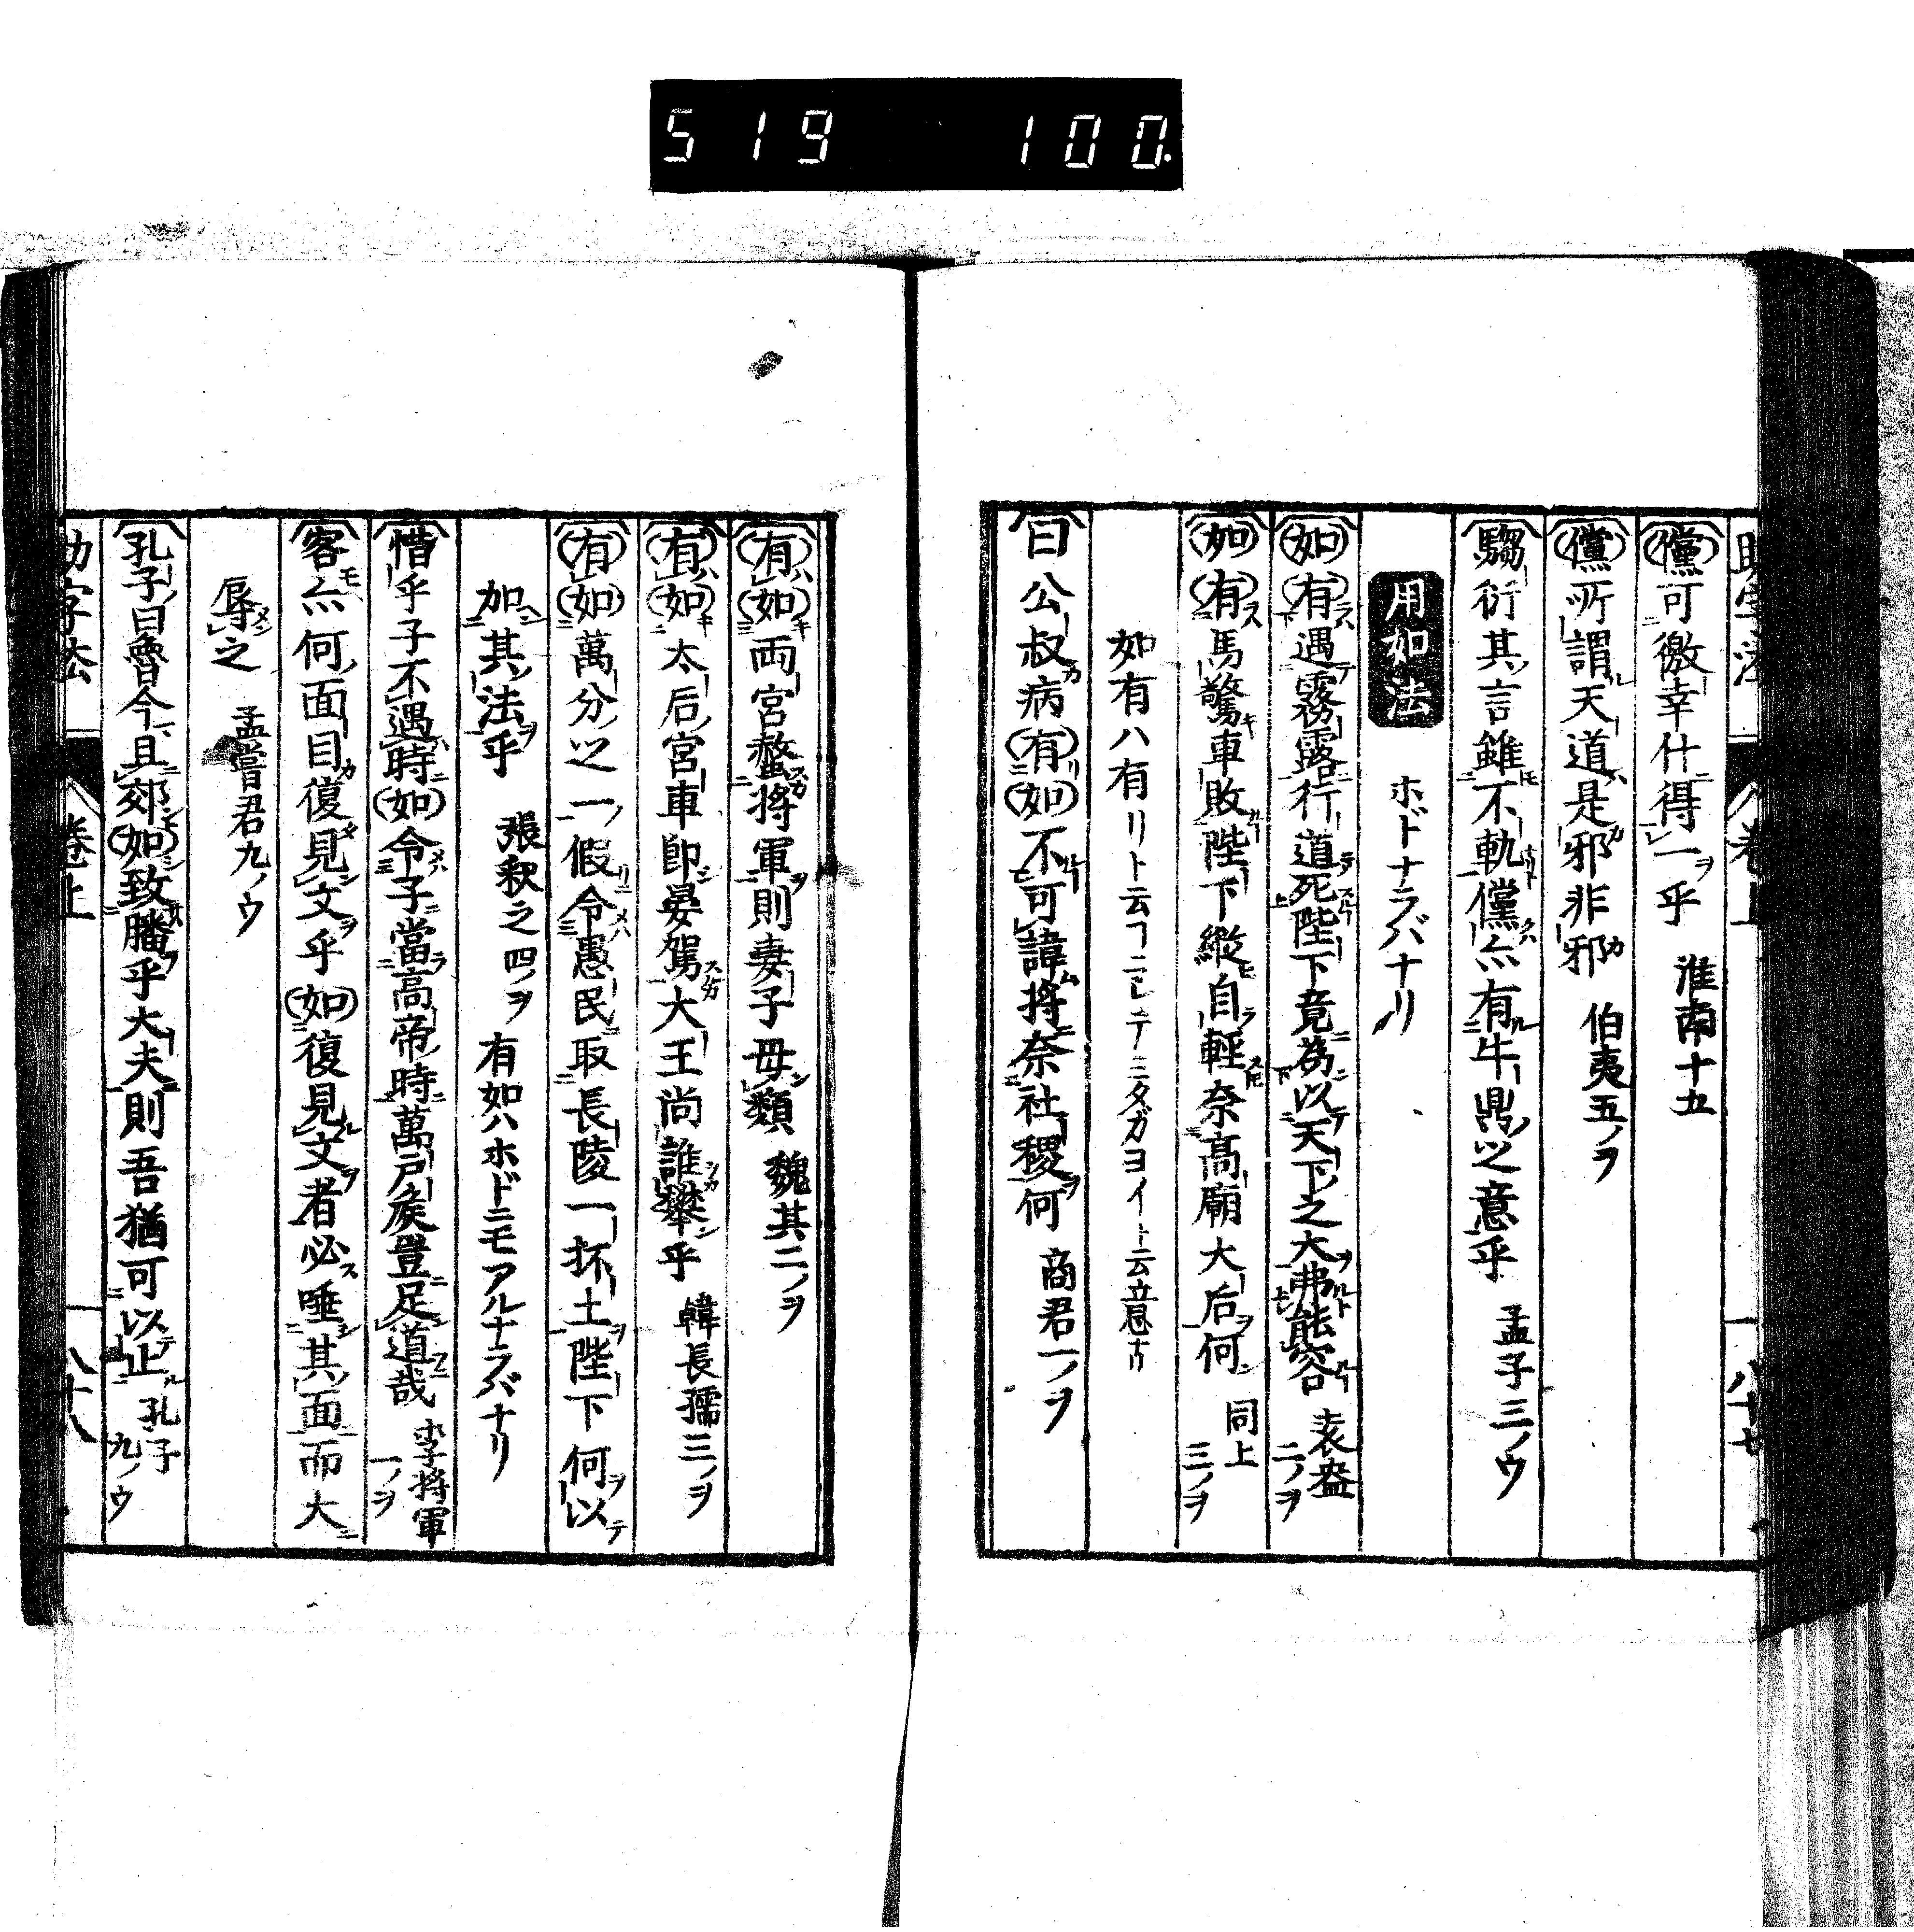 519 100.
儻可徼幸什得一乎 淮南十五
儻所謂天道是邪非邪 伯夷五ノヲ
騶衍其言雖不軌儻亦有牛鼎之意乎 孟子三ノウ
用如法 ホドナラバナリ
如有遇霧露行道死陛下竟為以天下之大弗能容 袁盎二ノヲ
如有馬驚車敗陛下縦自輕奈高廟大后何 同上三ノヲ
如有ハ有リト云
曰公叔病有如不可諱將奈社稷何 商君一ノヲ
有如両宮螫将軍則妻子毋類 魏其二ノヲ
有如太后宮車即晏駕大王尚誰攀乎 韓長孺三ノヲ
有如萬分之一假令愚民取長陵一抔土陛下何以
加其法乎 張釈之四ノヲ 有如ハホドニモアルナラバナリ
惜乎子不遇時如令子當高帝時萬戸矦豈足道哉 李将軍一ノヲ
客亦何面目復見文乎如復見文者必唾其面而大
辱之 孟嘗君九ノウ
孔子曰魯今且郊如致膰乎大夫則吾猶可以止 孔子九ノウ
助字法 卷上 八十八